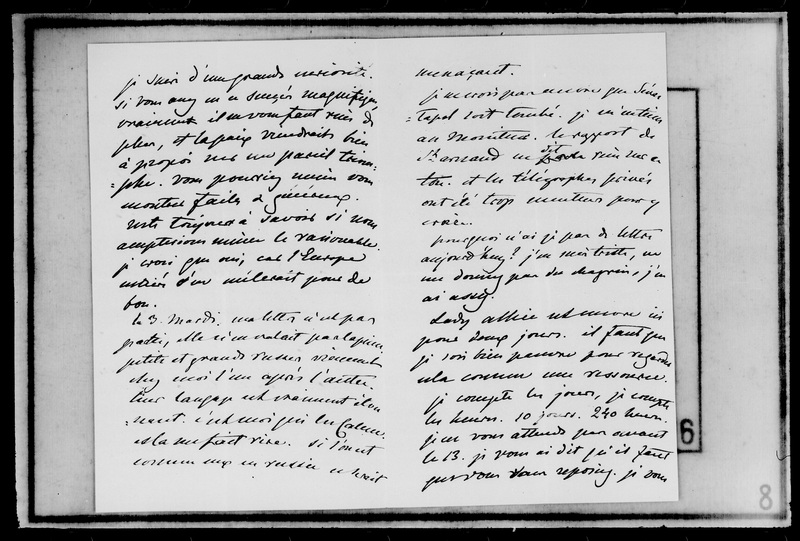 je suis d'une grande curiosité.
si vous avez eu un succès magnifique
vraiment il ne vous faut rien de
plus, et la paix viendrait bien
à propos sur un pareil triom-
=phe. vous pourriez même vous
montrer faciles & généreux.
reste toujours à savoir si nous
accepterions même le raisonable.
je crois que oui, car l'Europe
entière s'en mêlerait pour de
bon.
le 3. Mardi. ma lettre n'est pas
partie, elle n'en valait pas la peine
petits et grands russes viennent
chez moi l'un après l'autre.
leur langage est vraiment éton
=nant. c'est moi qui les calme.
cela me fait rire. si l'on est
comme ça en russie ce serait
menaçant.
je ne crois pas encore que Sévas
=topol soit tombé. je m'en tiens
au Moniteur. le rapport de
St arnaud ne dit rien sur ce
ton. et les télégraphes privés
ont été trop menteurs pour y
croire.
pourquoi n'ai je pas de lettre
aujourd'huy? j'en suis triste, ne
me donnez pas du chagrin, j'en
ai assez.
Lady allice est encore ici
pour deux jours. il faut que
je sois bien pauvre pour regarder
cela comme une ressource.
je compte les jours, je compte
les heures. 10 jours. 240 heures.
je ne vous attends pas avant
le 13. je vous ai dit qu'il faut
que vous vous reposiez. je vous
6
8